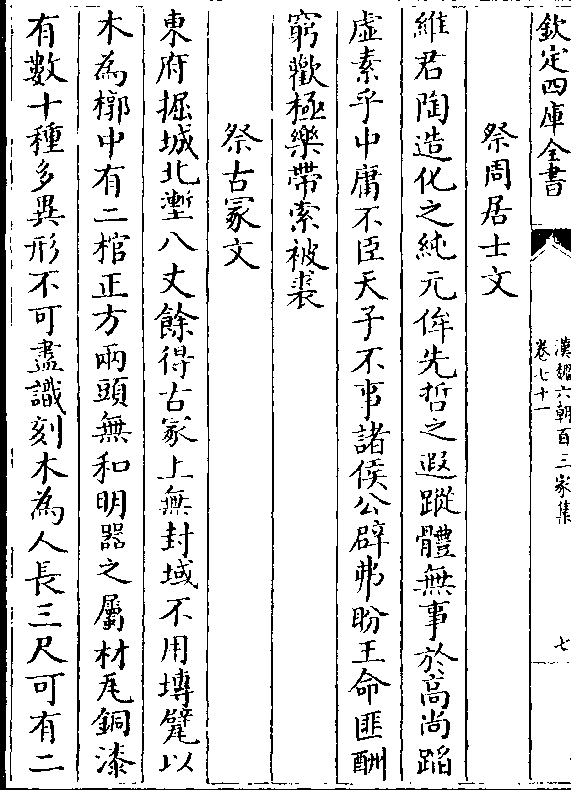 欽定四庫全書
漢魏六朝百三家集
卷七十一
七
祭周居士文
維君陶造化之純元侔先哲之遐蹤體無事於高尚蹈
虛素乎中庸不臣天子不事諸侯公辟弗盼王命匪酬
窮歡極樂帶索被裘
祭古冢文
東府掘城北壍八丈餘得古冢上無封域不用塼甓以
木為槨中有二棺正方兩頭無和明器之屬材瓦銅漆
有數十種多異形不可盡識刻木為人長三尺可有二